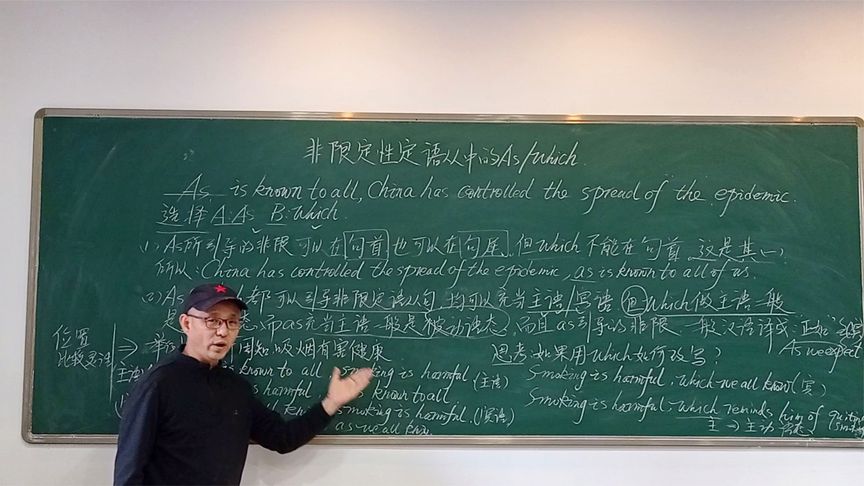 非限定性定语从中的As/Which.
As is known to all, China has controlled the spread of the epidemic.
选择 A: As B: Which.
(1). As所引导的非限可以在句首也可以在句尾. 但Which不能在句首 这是其(一)
所以: China has controlled the spread of the epidemic, as is known to all of us.
(2) As 都可以引导非限定语从句 均可以充当主语/宾语 但Which做主语一般
而as充当主语一般是被动语态, 而且as引导的非限 一般汉语译成: "正如"
As we expect
位置
比较灵活
⇒ 周知吸烟有害健康
思考: 如果用Which如何改写?
is known to all smoking is harmful. (主语)
Smoking is harmful, which we all know (宾)
is harmful, as known to all
all know, smoking is harmful. (宾语)
Smoking is harmful, which reminds him of quiting
as we all know
主 → 主动